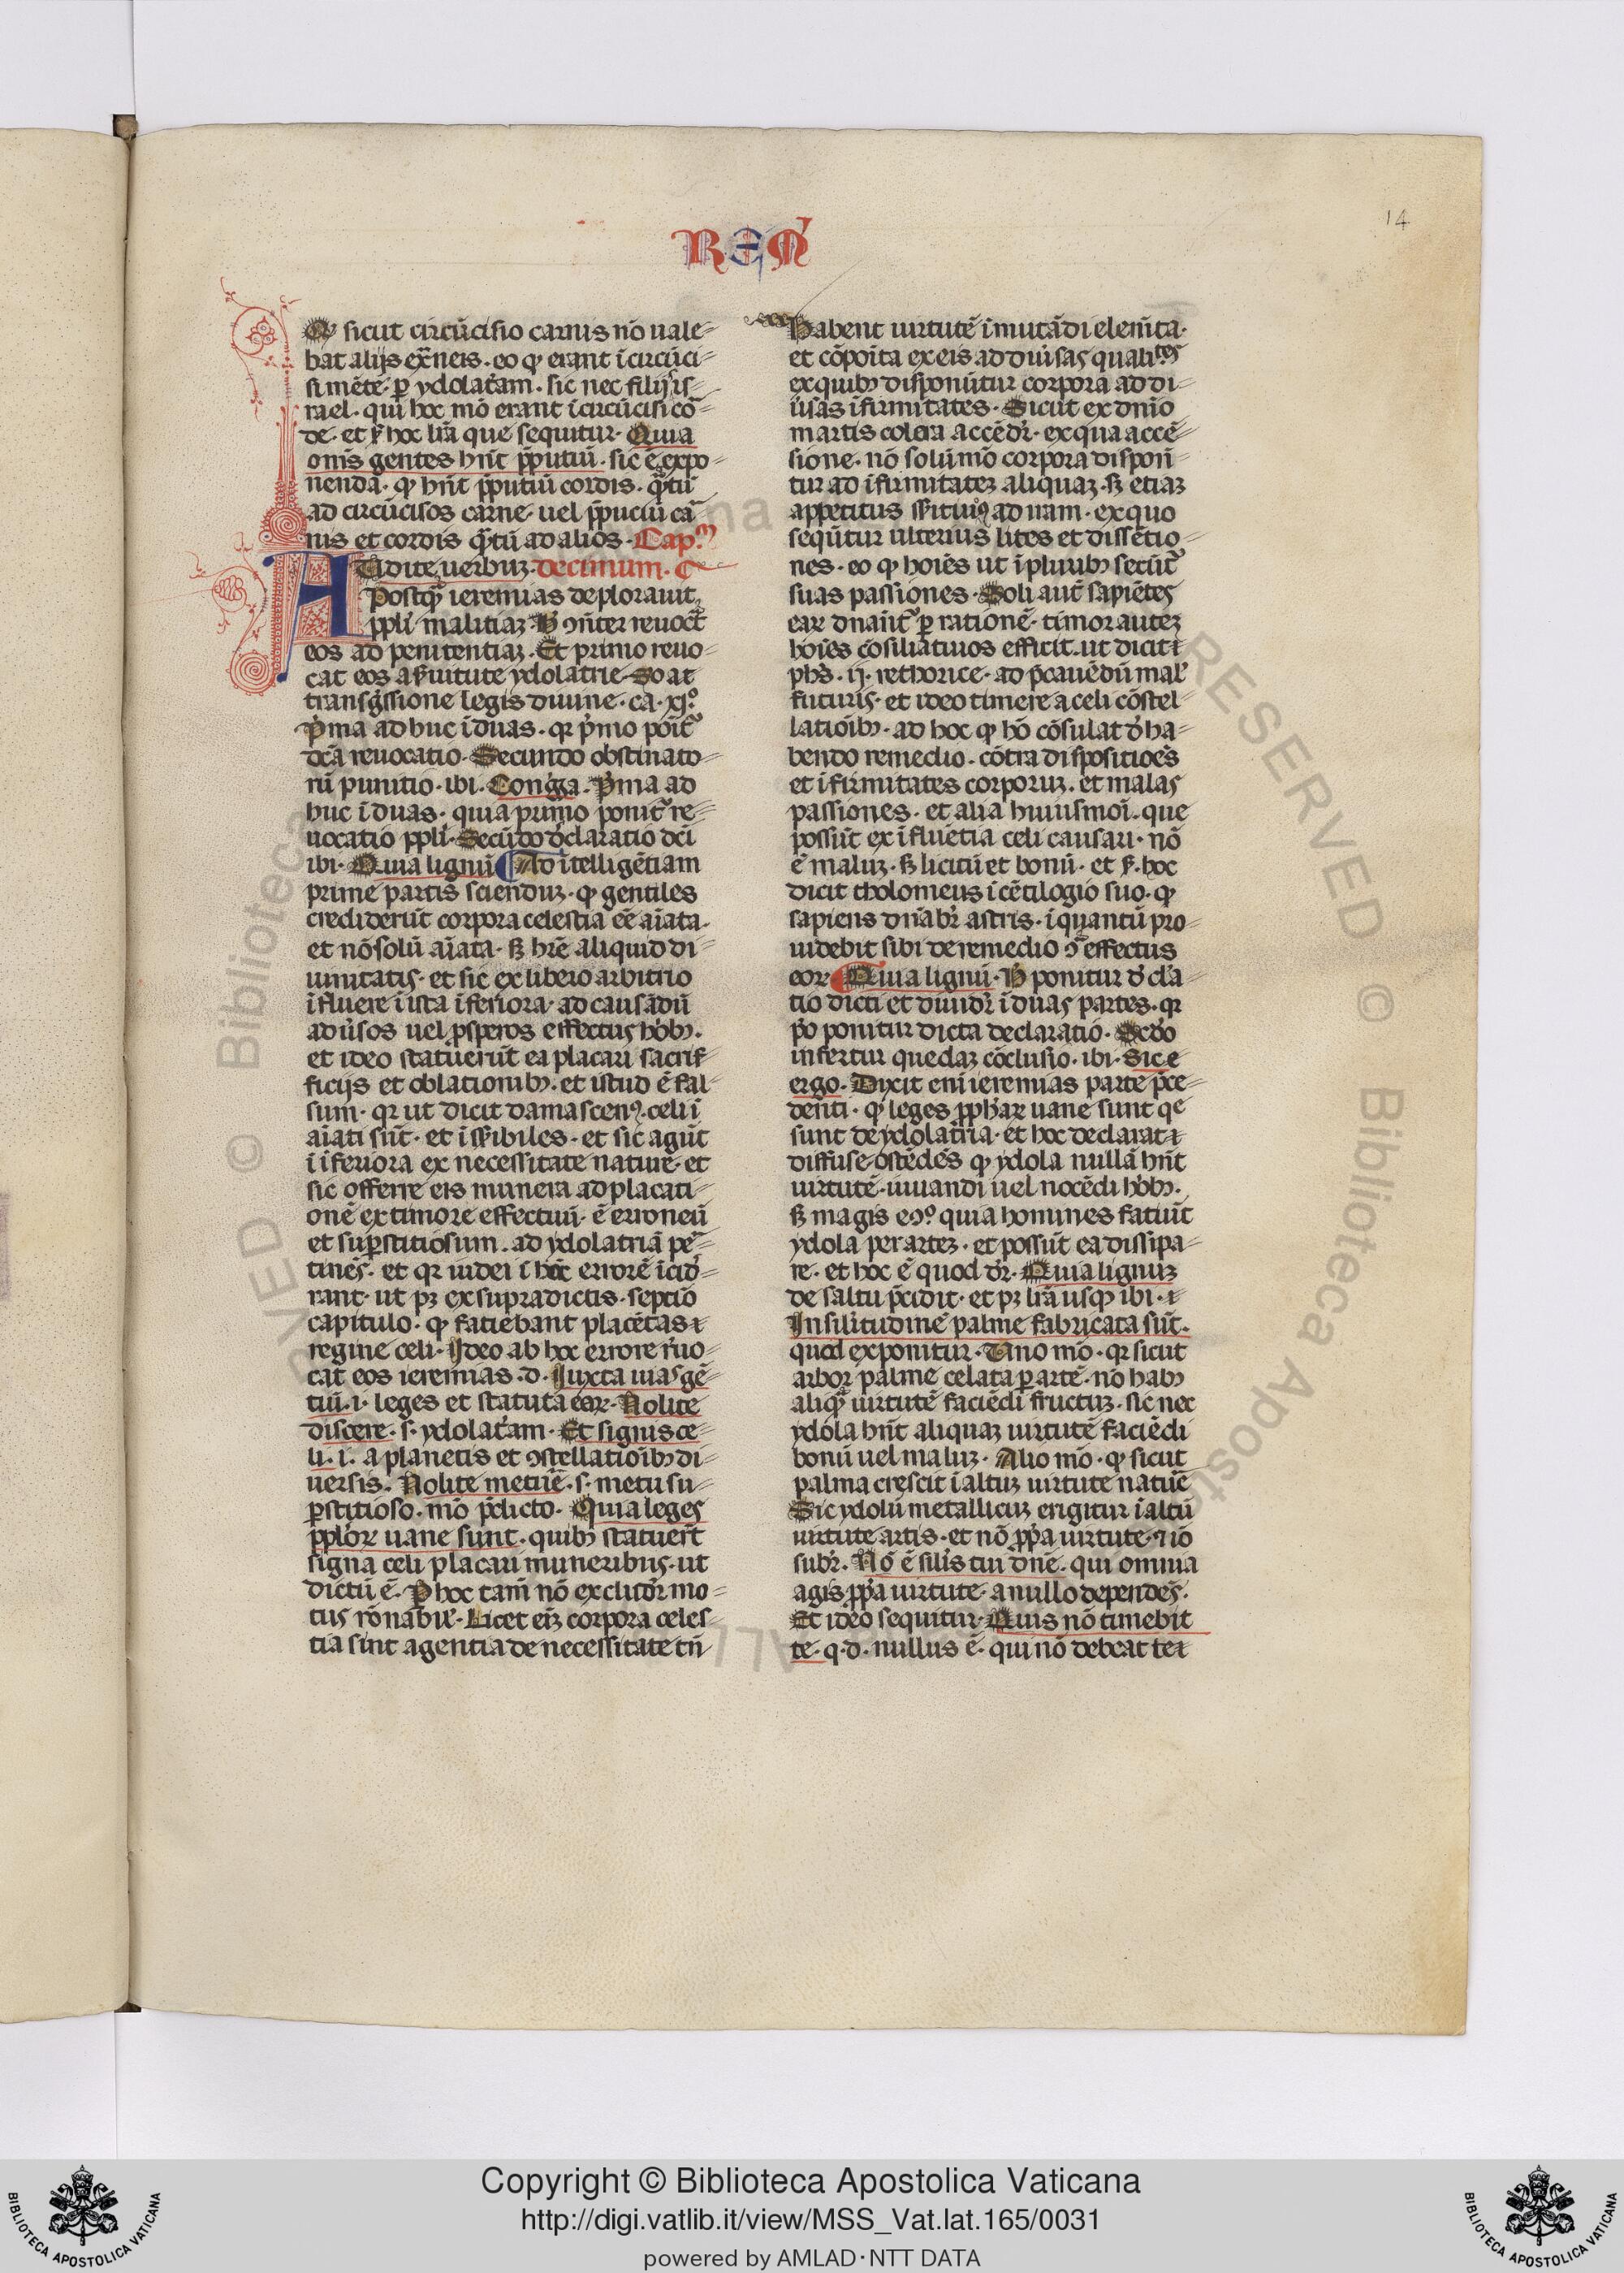 14
REM
Qͥ sicut circũcisio carnis nõ uale⸗
bat alijs ex̃neis · eo qͥ erant ĩcircũci⸗
si mẽte · ꝑ ydolat̃am · sic nec filij is⸗
rael · qui hoc mõ erant ĩcircũcisi cõ⸗
de · et ẜ hoc lr̃a que sequitur · Quia
onis̃ gentes hñt p̃putiũ · sic ẽ expo⸗
nenda · qͥ hñt p̃putiũ cordis · q̃tũ
ad circũcisos carne · uel p̃puciũ ca᷑
nis et cordis q̃tũ ad alios · Cap.ͫ
Audite uerbuꝫ · decimum ·
Postqͣ᷑ ieremias deplorauit
ppli᷑ malitiaꝫ · h̓ ꝯñter reuocat᷑
eos ad penitentiaꝫ · Et primo reuo⸗
cat eos a ẜuitute ydolatrie · 2o at
transg̃ssione legis diuine · ca · xjº
P̓ma adhuc ĩ duas · qꝛ p̓mo põit᷑
dc̃a reuocatio · Secundo obstinato⸗
rũ punitio · ibi · Cong̓ga · P̓ma ad
huc ĩ duas · quia primo ponit᷑ re⸗
uocatio ppli᷑ · Secũdo d̓claratio dc̃i
ibi · Quia lignũ Ad ĩtelligẽtiam
prime partis sciendũꝫ · qͥ gentiles
crediderũt corpora celestia eẽ aĩata ·
et nõ solũ aĩata · ẜꝫ hr̃e aliquid di⸗
uinitatis · et sic ex libero arbitrio
ĩfluere ĩ ista ĩferiora · ad causãdũ
adũsos uel ꝓsperos effectus hõibꝫ ·
et ideo statuerũt ea placari sacri⸗
ficijs et oblationibꝫ · et istud ẽ fal⸗
sum · qꝛ ut dicit damascenꝰ · celi ĩ
aĩati sũt · et ĩsẽsibiles · et sic agũt
ĩ ĩferiora ex necessitate nature · et
sic offerre eis munera ad placati⸗
onẽ ex timore effectuũ · ẽ erroneũ
et suꝑstitiosum · ad ydolatriã pe᷑⸗
tinẽs · et qꝛ iudei ĩ hũc errorẽ ĩcid̓⸗
rant · ut pꝫ ex supradictis · septĩo
capitulo · qͥ faciebant placẽtas
regine celi · Ideo ab hoc errore r̓uo⸗
cat eos ieremias · d · Iuxta uias gẽ⸗
tiũ · i · leges et statuta eaꝝ · Nolite
discere · s · ydolat̃am · Et signis ce⸗
li · i · a planetis et ꝯstellatiõibꝫ di⸗
uersis · Nolite metue᷑ · s · metu su⸗
ꝑstitioso · mõ p̃dicto · Quia leges
pploꝝ uane sunt · quibꝫ statuer̃t
signa celi placari muneribus · ut
dictũ ẽ · P̱ hoc tam̃ nõ excludit᷑ mo⸗
tus rõnabile · Licet eiꝫ corpora celes⸗
tia sint agentia de necessitate tñ
Habent uirtutẽ ĩmutãdi elem̃ta ·
et cõpoita ex eis ad diũsas qualitͣᵉˢ
ex quibꝫ disponũtur corpora ad di⸗
ũsas ĩfirmitates · Sicut ex dñio
martis colera accẽdit᷑ · ex qua accẽ⸗
sione · nõ solũmõ corpora disponũ⸗
tur ad ĩfirmitateꝫ aliquaꝫ · ẜꝫ etiaꝫ
appetitus sẽsitiuꝰ ad iram · ex quo
sequũtur ulterius lites et dissẽtio⸗
nes · eo qͥ hoĩes ut ĩ pluribꝫ secũt᷑
suas passiones · Soli aut̃ sapiẽtes
eaꝝ dnãnt᷑ ꝑ rationẽ · timor auteꝫ
hoĩes cõsiliatiuos efficit · ut dicit
phs̃ · ij · rethorice · ad p̃cauẽdũ mal᷑
futuris · et ideo timere a celi cõstel
latiõibꝫ · ad hoc qͥ hõ cõsulat d̓ ha⸗
bendo remedio · cõtra dispositiões
et ĩfirmitates corporuꝫ · et malas
passiones · et alia huiusmoĩ · que
possũt ex ĩfluẽtia celi causari · nõ
ẽ maluꝫ · ẜꝫ licitũ et bonũ · et ẜ hoc
dicit tholomeus ĩ cẽtilogio suo · qͥ
sapiens dñabit᷑ astris · ĩquantũ pro⸗
uidebit sibi de remedio ꝯ᷑ effectus
eoꝝ Quia lignũ · H̓ ponitur d̓cl̃a
tio dicti et diuidit᷑ ĩ duas partes · qꝛ
p̓o ponitur dicta declaratio · Scd̃o
infertur quedaꝫ cõclusio · ibi · Sic e
ergo · Dixit eni᷑ ieremias parte p̃ce⸗
denti · qͥ leges pplõꝝ uane sunt qe
sunt de ydolatria · et hoc declarat
diffuse ostẽdẽs qͥ ydola nullã hñt
uirtutẽ · iuuandi uel nocẽdi hõibꝫ ·
ẜꝫ magis eꝯº quia homines faciũt
ydola per arteꝫ · et possũt ea dissipa⸗
re · et hoc ẽ quod d᷑r · Quia lignuꝫ
de saltu p̃cidit · et pꝫ lr̃a usqꝫ ibi ·
In sil̃itudinẽ palme fabricata sũt ·
quod exponitur · Uno mõ · qꝛ sicut
arbor palme celata ꝑ artẽ · nõ habꝫ
aliqͣ᷑ uirtutẽ faciẽdi fructuꝫ · sic nec
ydola hñt aliquaꝫ uirtutẽ faciẽdi
bonũ uel maluꝫ · Alio mõ · qͥ sicut
palma crescit ĩ altuꝫ uirtute nature᷑
Sic ydolũ metallicuꝫ erigitur ĩ altũ
uirtute artis · et nõ pp̃a uirtute · ⁊ iõ
subd᷑r · Nõ ẽ sil̃is tui dñe · qui omnia
agis pp̃a uirtute · a nullo dependẽs ·
Et ideo sequitur · Quis nõ timebit
te · q · d · nullus ẽ · qui nõ debeat te
Copyright © Biblioteca Apostolica Vaticana
http://digi.vatlib.it/view/MSS_Vat.lat.165/0031
powered by AMLAD·NTT DATA
BIBLIOTECA APOSTOLICA VATICANA
BIBLIOTECA APOSTOLICA VATICANA